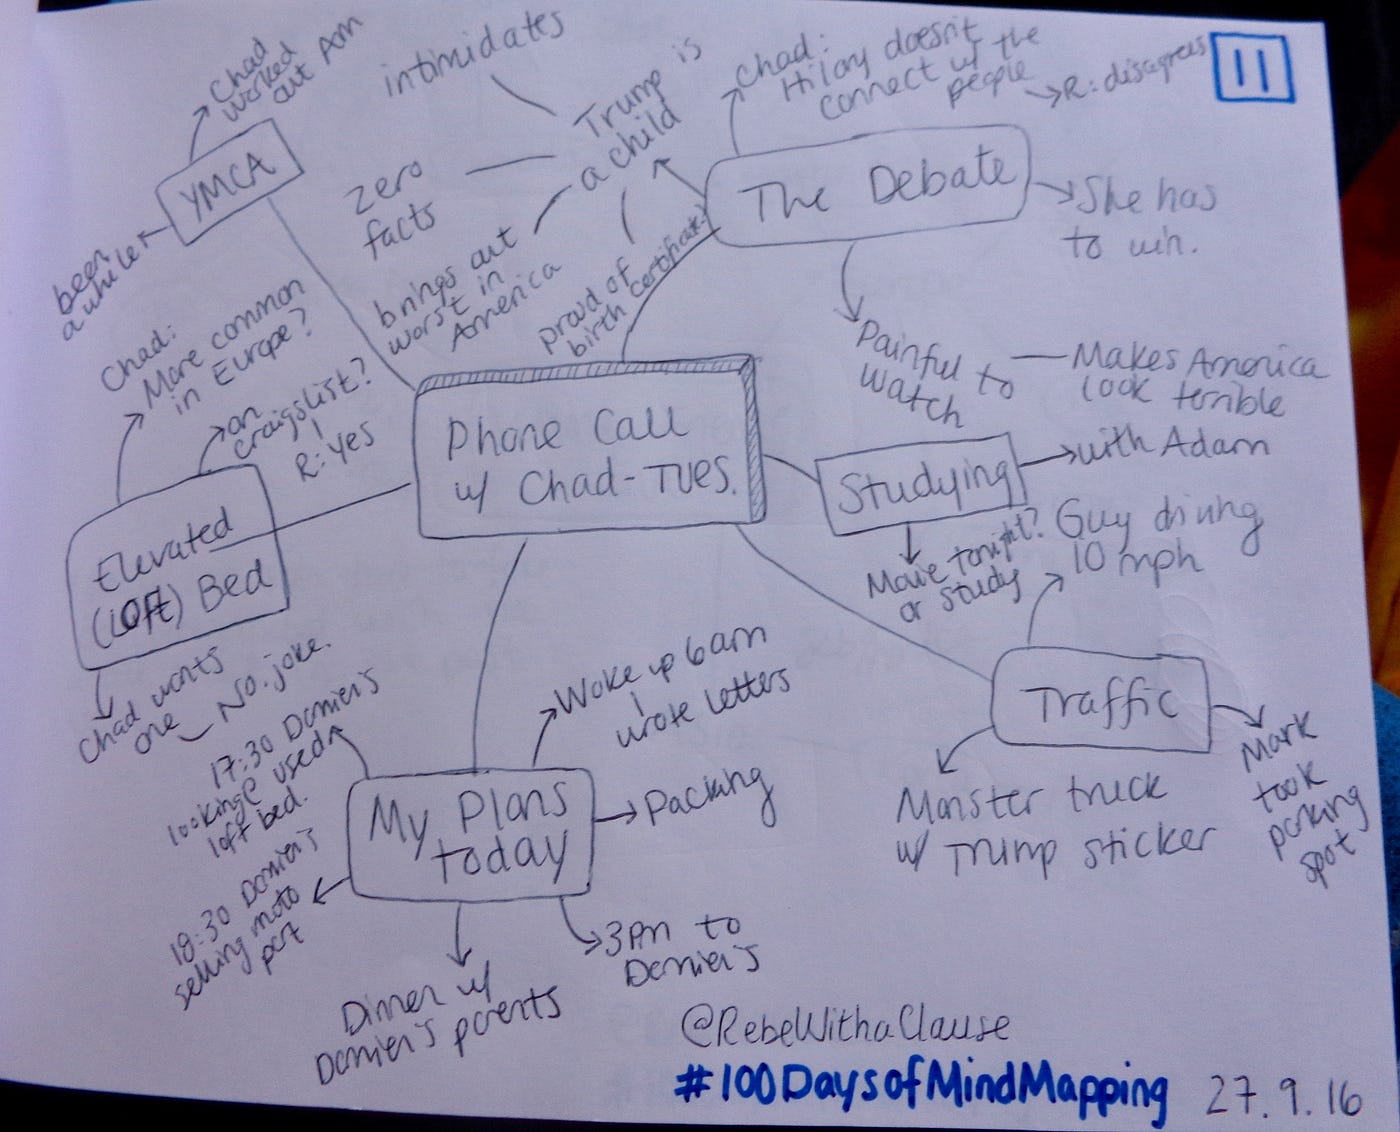 11
Chad
worked
out Pom
YMCA
been
a while
intimidates
Trump is
a child
zero
facts
brings out
worst in
America
proud of
birth certificate?
Chad:
Hilary doesn't
connect w/ the
people
R: disagrees
The Debate
She has
to win.
Painful to
watch
Makes America
look terrible
Chad:
More common
in Europe?
on
craigslist?
R: yes
Elevated
(Loft) Bed
Chad wants
one
No joke.
Phone Call
w/ Chad-TUES.
Studying
with Adam
Movie tonight?
or study
Guy driving
10 mph
Traffic
Monster truck
w/ Trump sticker
Mark
took
parking
spot
My Plans
today
Woke up 6am
wrote letters
Packing
3pm to
Damier's
Dinner w/
Damier's parents
17:30 Damier's
looking@ used
loft bed.
18:30 Damier's
selling moto
part
@RebeWithaClause
#100DaysofMindMapping 27.9.16